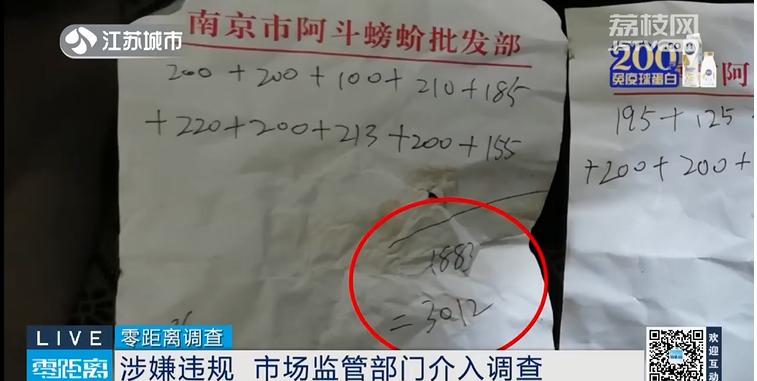 江苏城市
荔枝网
南京市阿斗螃蚧批发部
200
免疫球蛋白
阿
200 + 200 + 100 + 210 + 185
+ 220 + 200 + 213 + 200 + 155
195 + 125
+ 200 + 200 +
1883
= 3012
LIVE
零距离调查
零距离
涉嫌违规 市场监管部门介入调查
欢迎互动